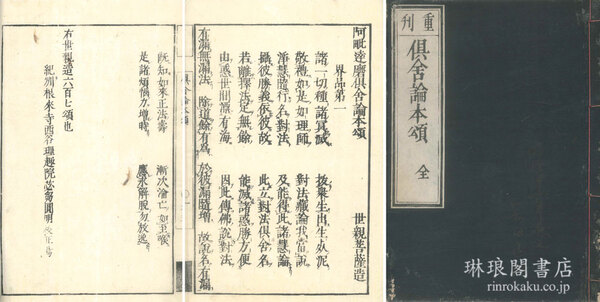 重刊
俱舍論本頌 全
阿毗達磨俱舍論本頌
世親菩薩造
界品第一
諸一切種諸冥滅 拔衆生出生死泥
敬禮如是如理師 對法藏論我當說
淨慧隨行名對法 及能得此諸慧論
攝彼勝義依彼故 此立對法俱舍名
若離擇法定無餘 能滅諸惑勝方便
由惑世間漂有海 因此傳佛說對法
有漏無漏法 除道餘有爲 於彼漏隨增 故說名有漏
俱舍論本頌
既知如來正法壽 漸次淪亡如至喉
是諸煩惱力增時 應求解脫勿放逸
右世親造六百七頌也
紀州根來寺西谷
琳琅閣書店
rinrokaku.co.jp